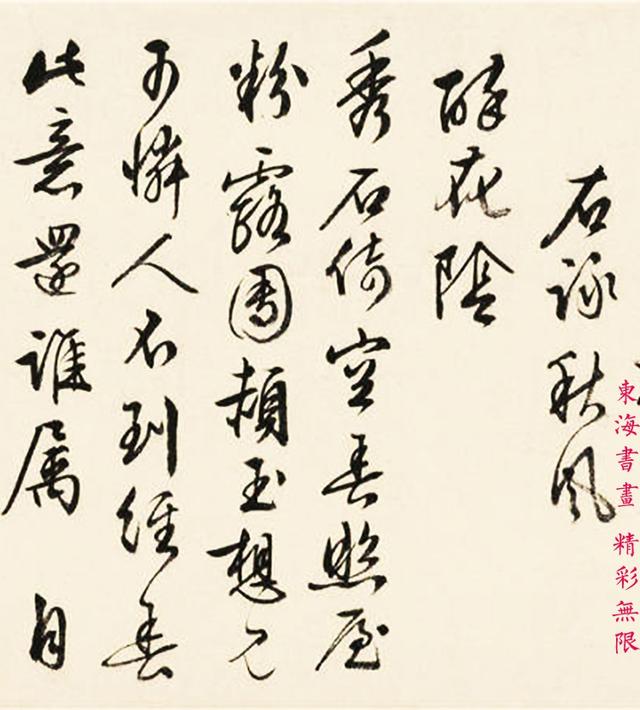 右詠秋風
醉花陰
秀石倚空春照屋
粉露團頳玉想見
可憐人不到經春
此意還誰屬
東海書畫 精彩無限